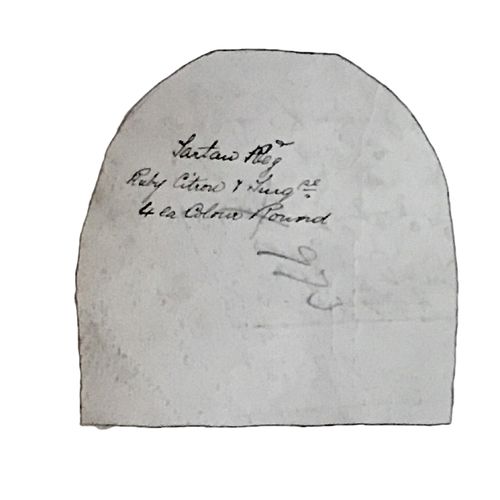 Tartan Regd
Ruby Citron & Turqse
4 ea Colour Round
973